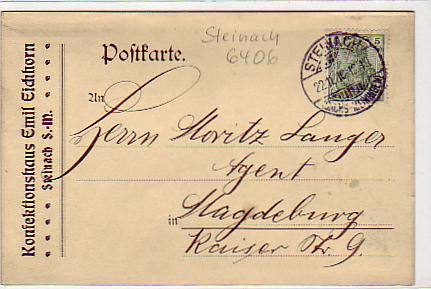 Konfektionshaus Emil Eichhorn
Steinach S.-M.
Steinach
6406
Postkarte.
STEINACH
5
An
Herrn Moritz Langer
Agent
in Magdeburg
Kaiser Str. 9.